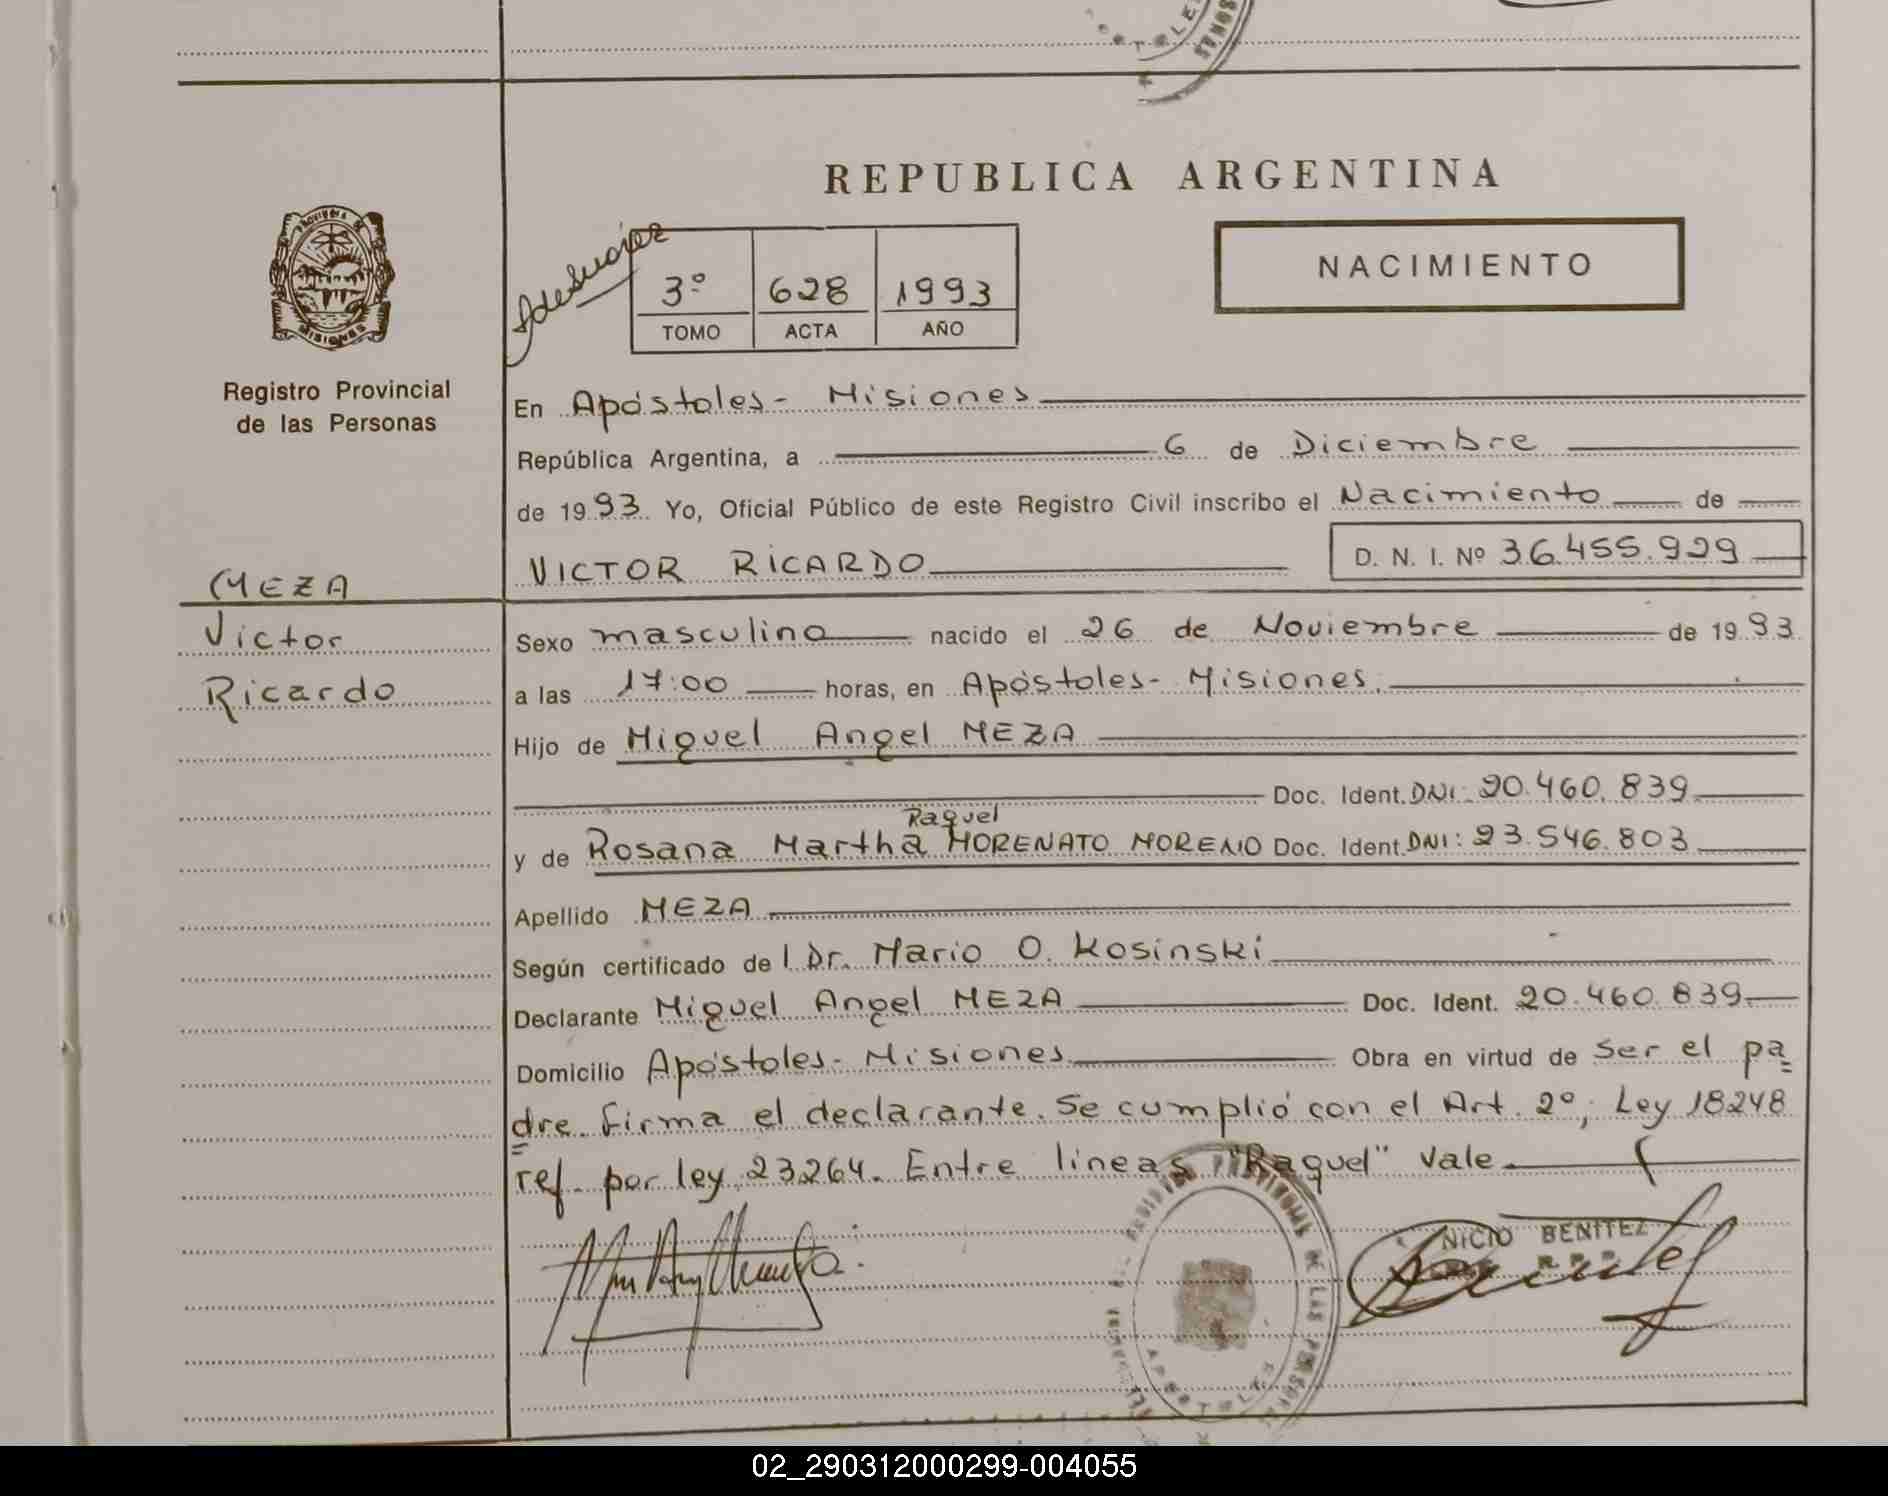 REPUBLICA ARGENTINA
NACIMIENTO
3º 628 1993
TOMO ACTA AÑO
PROVINCIA DE MISIONES
Registro Provincial
de las Personas
En Apóstoles - Misiones
República Argentina, a 6 de Diciembre
de 1993. Yo, Oficial Público de este Registro Civil inscribo el Nacimiento de
VICTOR RICARDO D. N. I. Nº 36.455.929
MEZA
Victor
Ricardo
Sexo masculino nacido el 26 de Noviembre de 1993
a las 17:00 horas, en Apóstoles - Misiones.
Hijo de Miguel Angel MEZA
Doc. Ident. DNI: 20.460.839
Raquel
y de Rosana Martha MORENATO MORENO Doc. Ident. DNI: 23.546.803
Apellido MEZA
Según certificado de l Dr. Mario O. Kosinski
Declarante Miguel Angel MEZA Doc. Ident. 20.460.839
Domicilio Apóstoles - Misiones Obra en virtud de ser el pa
dre. Firma el declarante. Se cumplió con el Art. 2º, Ley 18248
ref. por ley 23264. Entre lineas "Raquel" Vale
NICIO BENITEZ
DE LAS PERSONAS
APOSTOLES
02_290312000299-004055